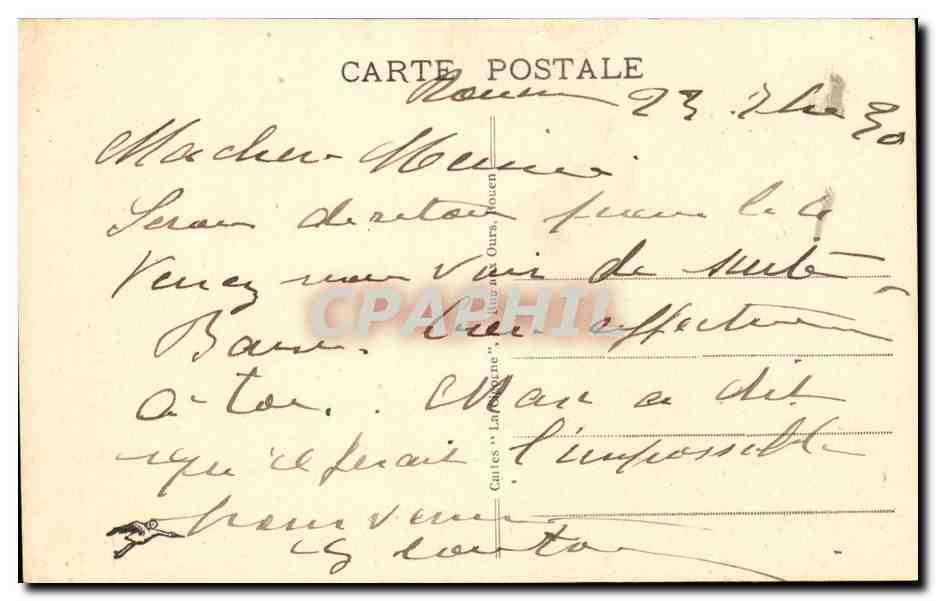 CARTE POSTALE
Rouen 23 7bre 30
Ma chere Mimi
Serons de retour pour le 4
Venez nous voir de suite
Bons. affectueux
à toi. Max a dit
qu'il ferait l'impossible
pour venir
Cartes "La Cigogne", Rue aux Ours, Rouen
CPAPHIL